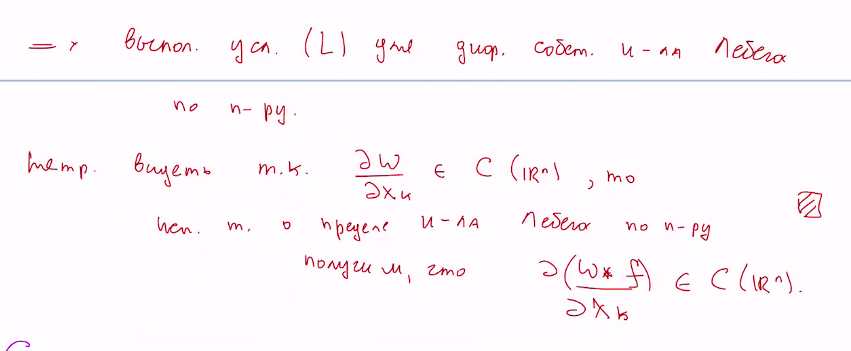 => выпол. усл. (L) для диф. собст. и-ла Лебега
по п-ру.
Нетр. видеть т.к. ∂W/∂x_k ∈ C(ℝⁿ), то
исп. т. о пределе и-ла Лебега по п-ру
получим, что ∂(W * f)/∂x_k ∈ C(ℝⁿ).